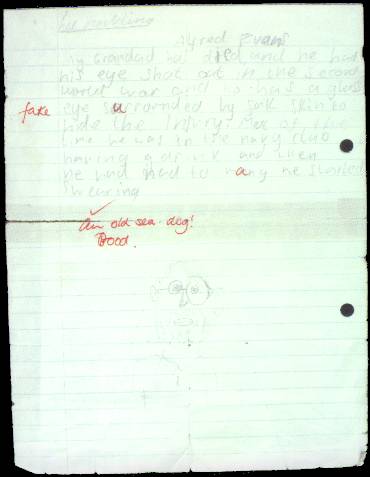 Alfred Evans
My Grandad has died and he had
his eye shot out in the second
world war and so has a glass
fake eye surrounded by soft skin to
hide the injury. Most of the
time he was in the navy club
having a drink and when
he had had to many he started
swearing
An old sea dog!
Good.